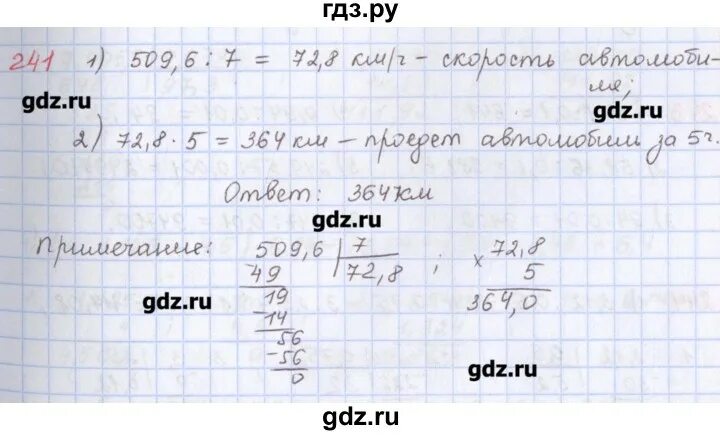 гдз.ру
241 1) 509,6 : 7 = 72,8 км/ч - скорость автомоби-
ля;
gdz.ru gdz.ru
2) 72,8 · 5 = 364 км - проедет автомобиль за 5 ч.
Ответ: 364 км
gdz.ru
Примечание: 509,6 | 7 ; × 72,8
49 72,8 5
19 364,0
-14
gdz.ru
56
-56
gdz.ru
0
gdz.ru